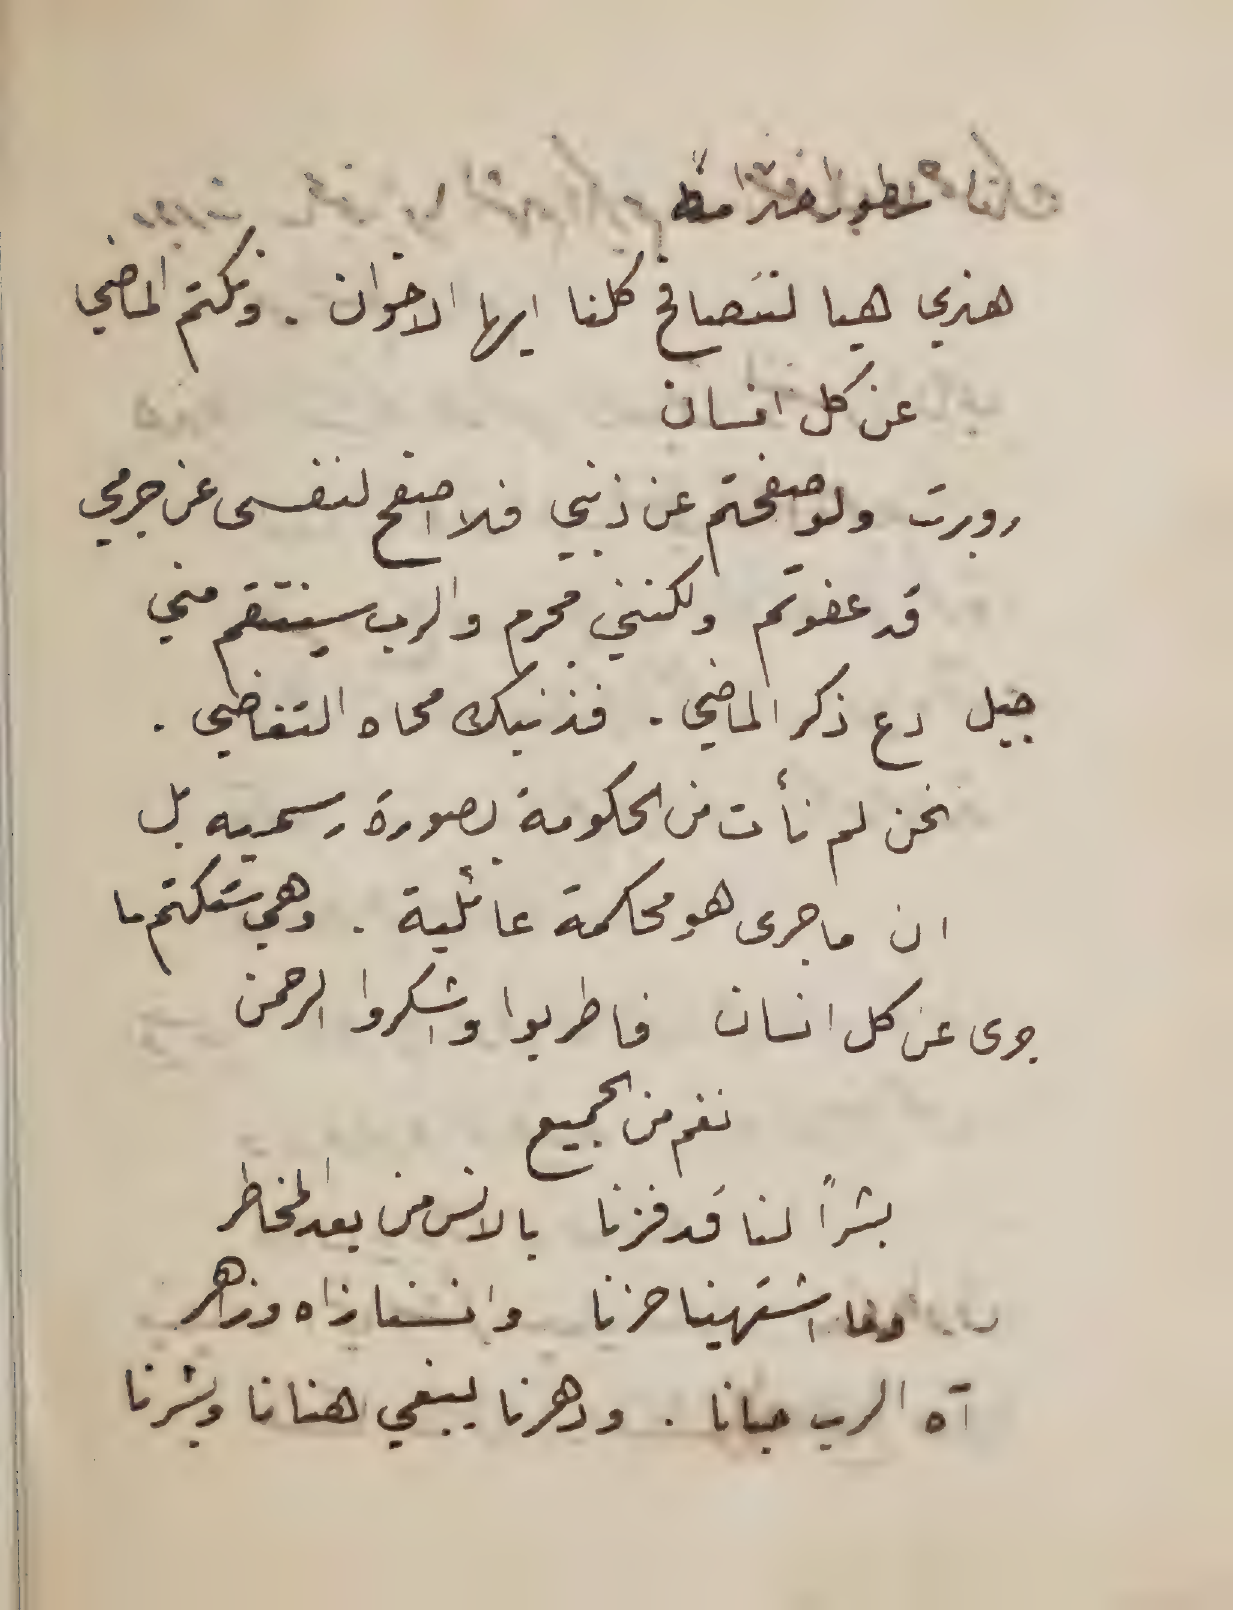 هنري هيا لنتصافح كلنا ايها الاخوان . ونكتم الماضي
عن كل انسان
روبرت ولو صفحتم عن ذنبي فلا اصفح لنفسى عن جرمي
قد عفوتم ولكنني مجرم والرب سينتقم مني
جيل دع ذكر الماضي . فذنبك محاه التغاضي .
نحن لم نأت من الحكومة بصورة رسميه بل
ان ماجرى هو محاكمة عائلية . وهي ستكتم ما
جرى عن كل انسان فاطربوا واشكروا الرحمن
نغم من الجميع
بشراً لنا قد فزنا بالانس من بعد المخاطر
وما اشتهينا حزنا وانسنا زاه وزاهر
آه الرب حبانا . ودهرنا يبغي هنانا وبشرنا